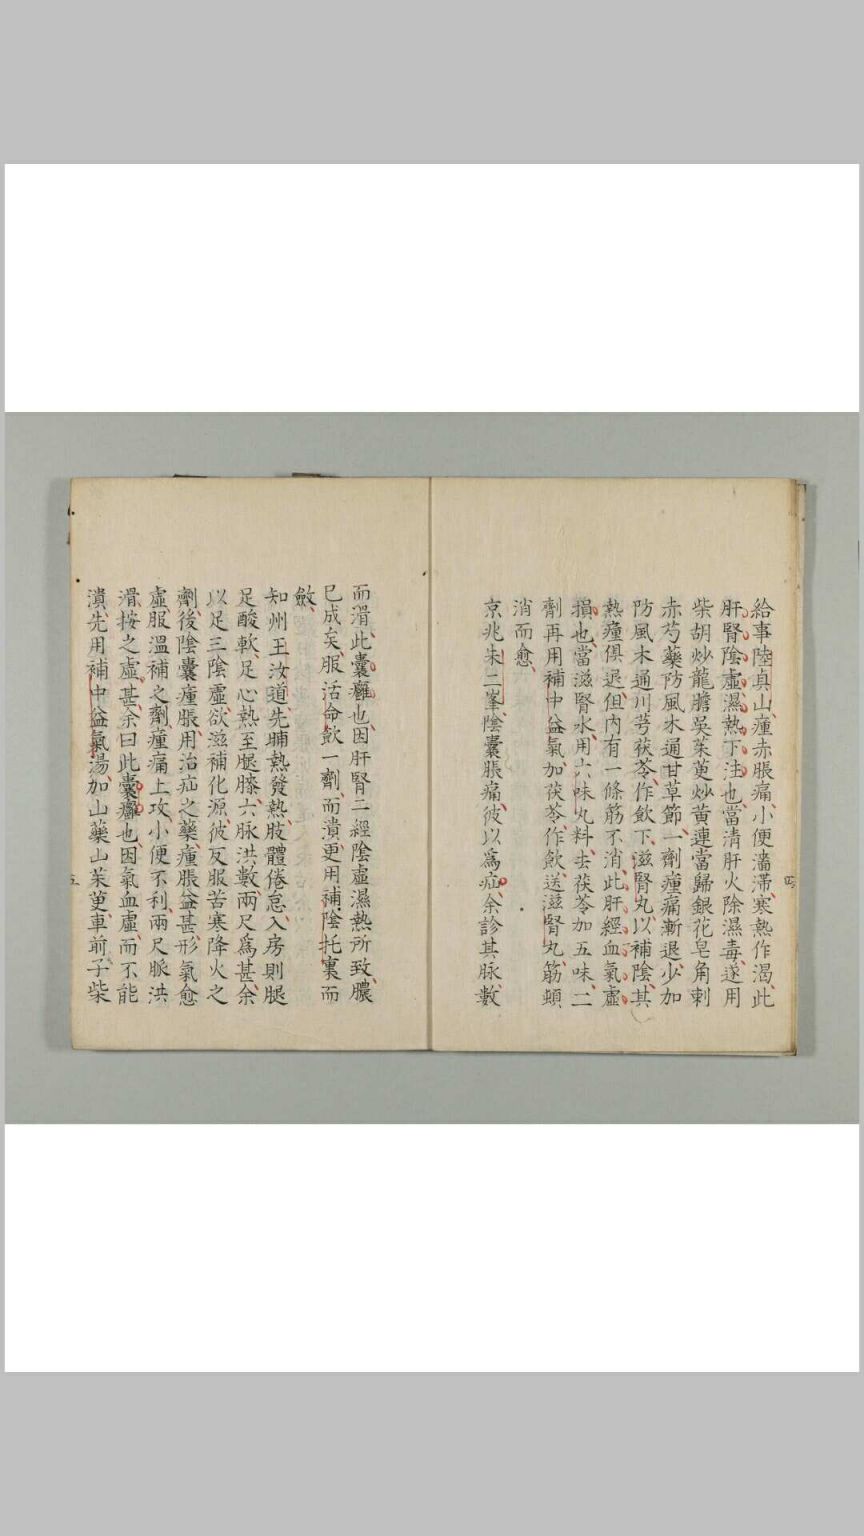 給事陸真山瘇赤脹痛小便濇滯寒熱作渴此
肝腎陰虛濕熱下注也當清肝火除濕毒遂用
柴胡炒龍膽吳茱萸炒黃連當歸銀花皂角刺
赤芍藥防風木通甘草節一劑瘇痛漸退少加
防風木通川芎茯苓作飲下滋腎丸以補陰其
熱瘇俱退但內有一條筋不消此肝經血氣虛
損也當滋腎水用六味丸料去茯苓加五味二
劑再用補中益氣加茯苓作飲送滋腎丸筋頓
消而愈
京兆朱二峯陰囊脹痛彼以爲疝余診其脉數
四
而滑此囊癰也因肝腎二經陰虛濕熱所致膿
已成矣服活命飲一劑而潰更用補陰托裏而
斂
知州王汝道先晡熱發熱肢體倦怠入房則腿
足酸軟足心熱至腿膝六脉洪數兩尺爲甚余
以足三陰虛欲滋補化源彼反服苦寒降火之
劑後陰囊瘇脹用治疝之藥瘇脹益甚形氣愈
虛服溫補之劑瘇痛上攻小便不利兩尺脈洪
滑按之虛甚余曰此囊癰也因氣血虛而不能
潰先用補中益氣湯加山藥山茱萸車前子柴
五